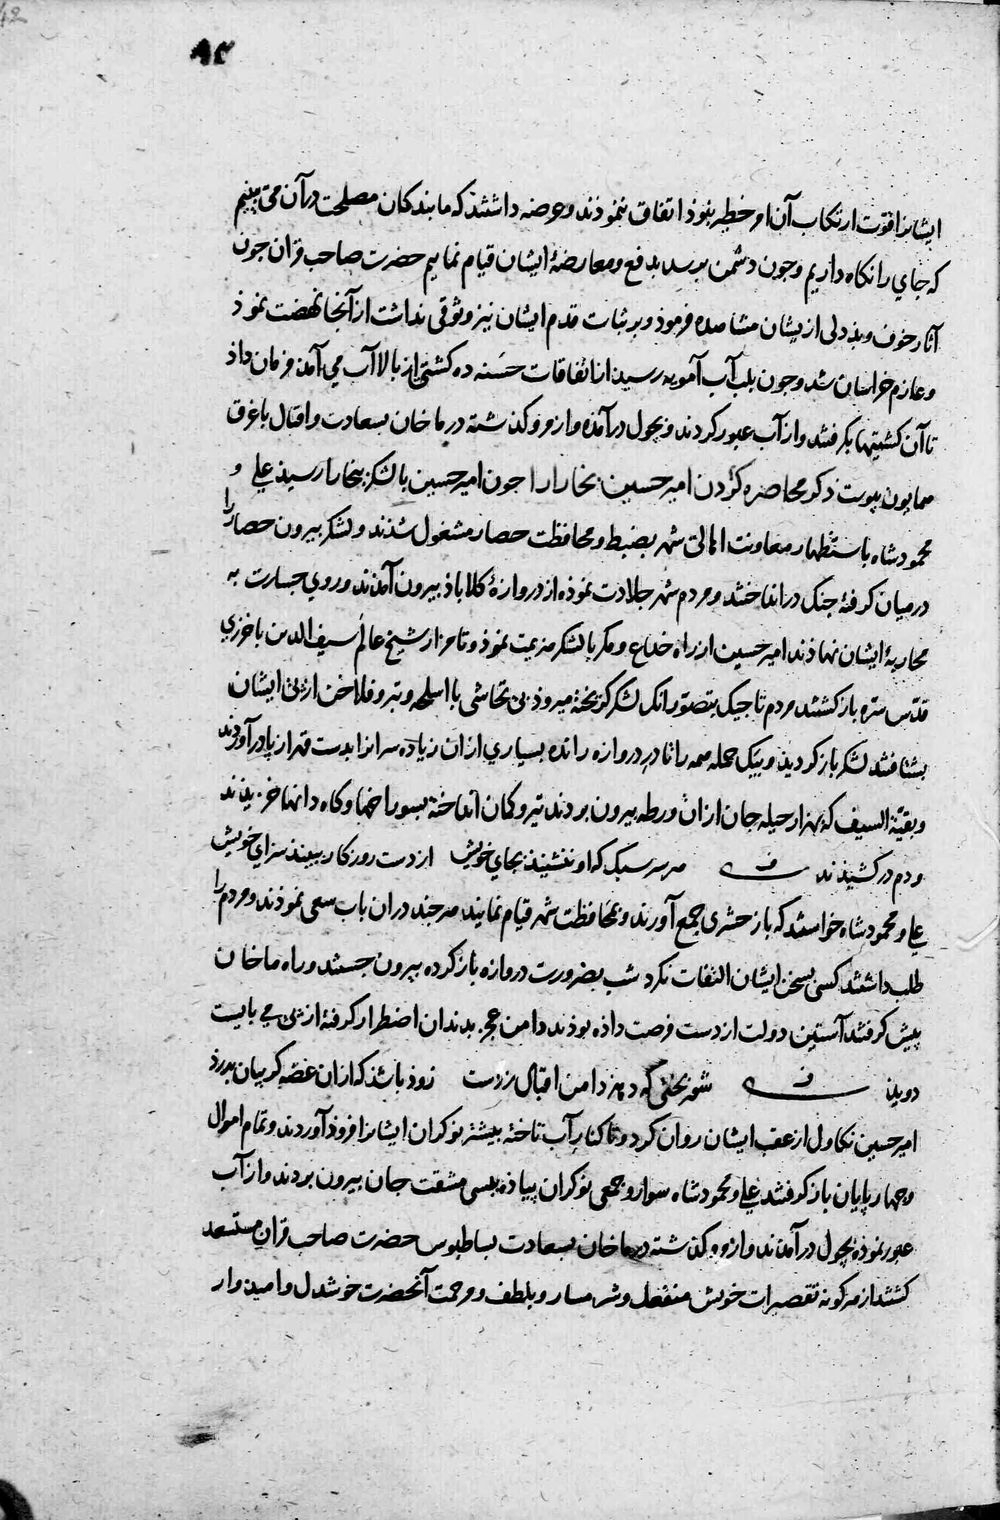 ۹۴
ایشانرا قوّت ارتکاب آن امر خطیر نبوذ اتفاق ننموذند و عرضه داشتند که ما بندکان مصلحت در آن می بینیم
که جای را نکاه داریم و جون دشمن برسد بدفع و معارضهٔ ایشان قیام نماییم حضرت صاحب قران جون
آثار خوف و بددلی از یشان مشاهده فرموذ و بر ثبات قدم ایشان نیز وثوقی نداشت از آنجا نهضت نموذ
و عازم خراسان شد و جون بلب آب آمویه رسید از اتفاقات حسنه ده کشتی از بالا آب می آمد فرمان داذ
تا آن کشتیها بکرفتند و از آب عبور کردند و بچول در آمده و از مرو کذشته در ماخان بسعادت و اقبال باغرق
همایون پیوست ذکر محاصره کردن امیر حسین بخارا را جون امیر حسین با لشکر ببخارا رسید علی و
محمود شاه باستظهار معاونت اهالی شهر بضبط و محافظت حصار مشغول شدند و لشکر بیرون حصار را
در میان کرفته جنک در انداختند و مردم شهر جلادت نموذه از دروازهٔ کلاباذ بیرون آمدند و روی جسارت به
محاربهٔ ایشان نهاذند امیر حسین از راه خداع و مکر با لشکر هزیمت نموذ و تا مزار شیخ عالم سیف الدین باخرزی
قدّس سرّه باز کشتند مردم تاجیک بتصور انک لشکر کریخته میروذ بی تحاشی با اسلحه و تبر و فلاخن از پی ایشان
بشتافتند لشکر باز کردید و بیک حمله همه را تا در دروازه رانده بسیاری از ان زیاده سرانرا بدست قهر از پا در آوردند
و بقیّة السیف که بهزار حیله جان از ان ورطه بیرون بردند تیر و کمان انداخته بسوراخها و کاه دانها خزیذند
و دم در کشیذند ف هر سر سبک که او ننشیند بجای خویش از دست روزکار ببیند سزای خویش
علی و محمود شاه خواستند که باز حشری جمع آورند و بمحافظت شهر قیام نمایند هر جند در ان باب سعی نموذند و مردم را
طلب داشتند کسی بسخن ایشان التفات نکرد شب بضرورت دروازه باز کرده بیرون جستند و راه ماخان
پیش کرفتند آستین دولت از دست فرصت داذه بوذند دامن عجز بدندان اضطرار کرفته از پی می بایست
دوید ف شوربختی که دهد دامن اقبال ز دست زوذ باشذ که از ان غصّه کریبان بدرذ
امیر حسین تکاول از عقب ایشان روان کرد و تا کنار آب تاخته بیشتر نوکران ایشانرا فروذ آوردند و تمام اموال
و چهار پایان باز کرفتند علی و محمود شاه سوار و جمعی نوکران پیاذه بسی مشقت جان بیرون بردند و از آب
عبور نموذه بچول در آمدند و از مرو کذشته در ماخان بسعادت بساطبوس حضرت صاحب قران مستسعد
کشتند از هر کونه تقصیرات خویش منفعل و شرمسار و بلطف و مرحمت آنحضرت خوشدل و امیذوار